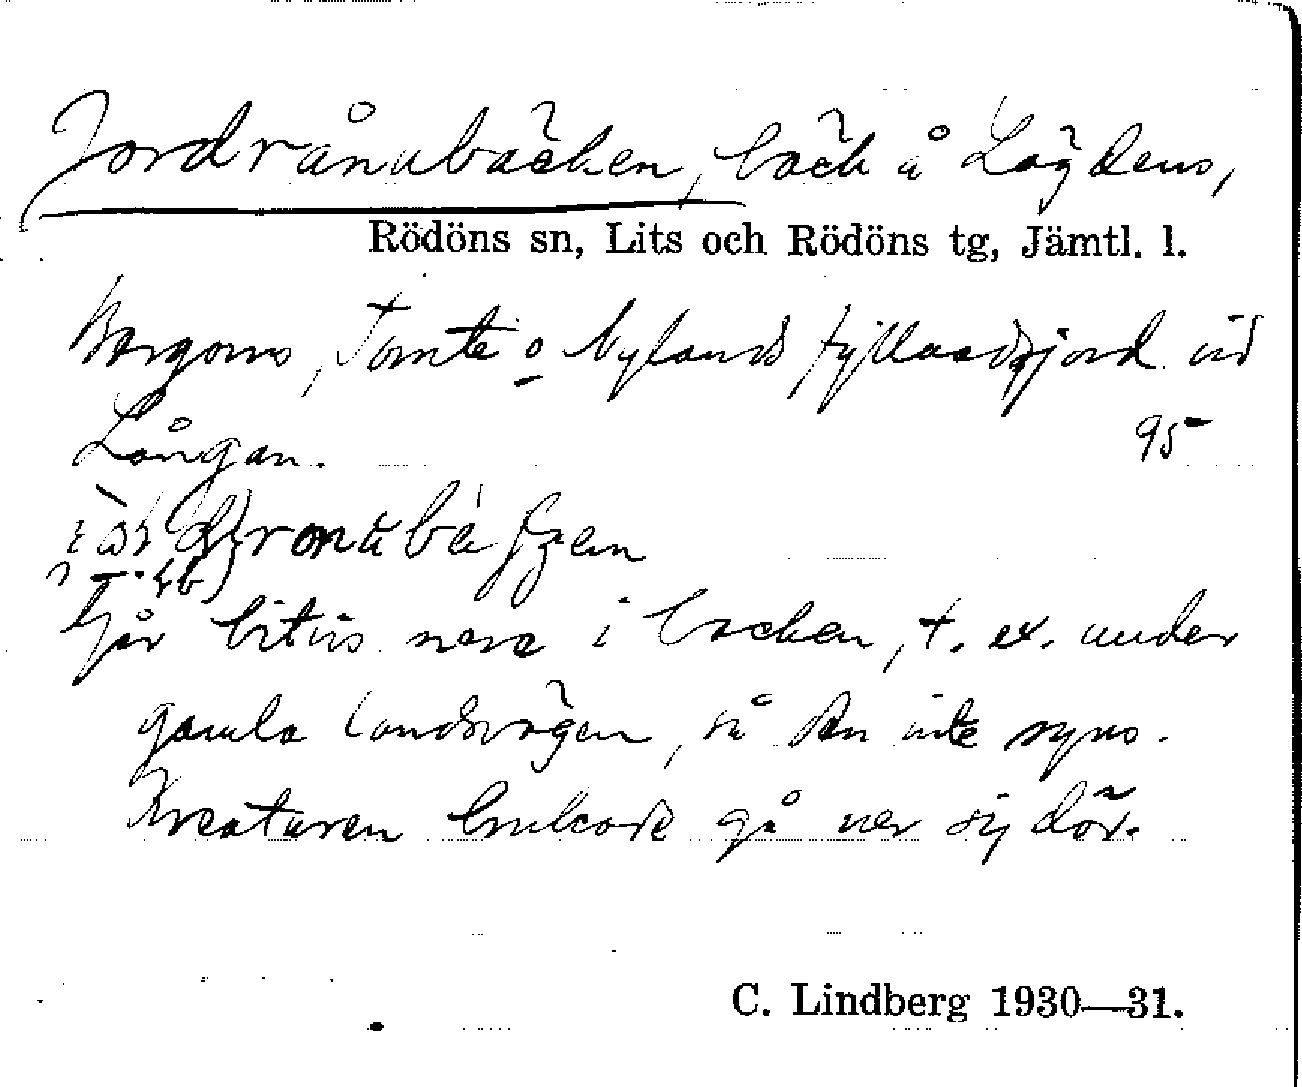 Jordrånnbäcken, bäck å Lägdens,
Rödöns sn, Lits och Rödöns tg, Jämtl. l.
Bergoms, Tomte o Nylands tylladsjord vid
Långan. 95
Går bitvis nere i backen, t. ex. under
gamla landsvägen, så den inte synes.
Kreaturen brukade gå ner sig där.
C. Lindberg 1930—31.